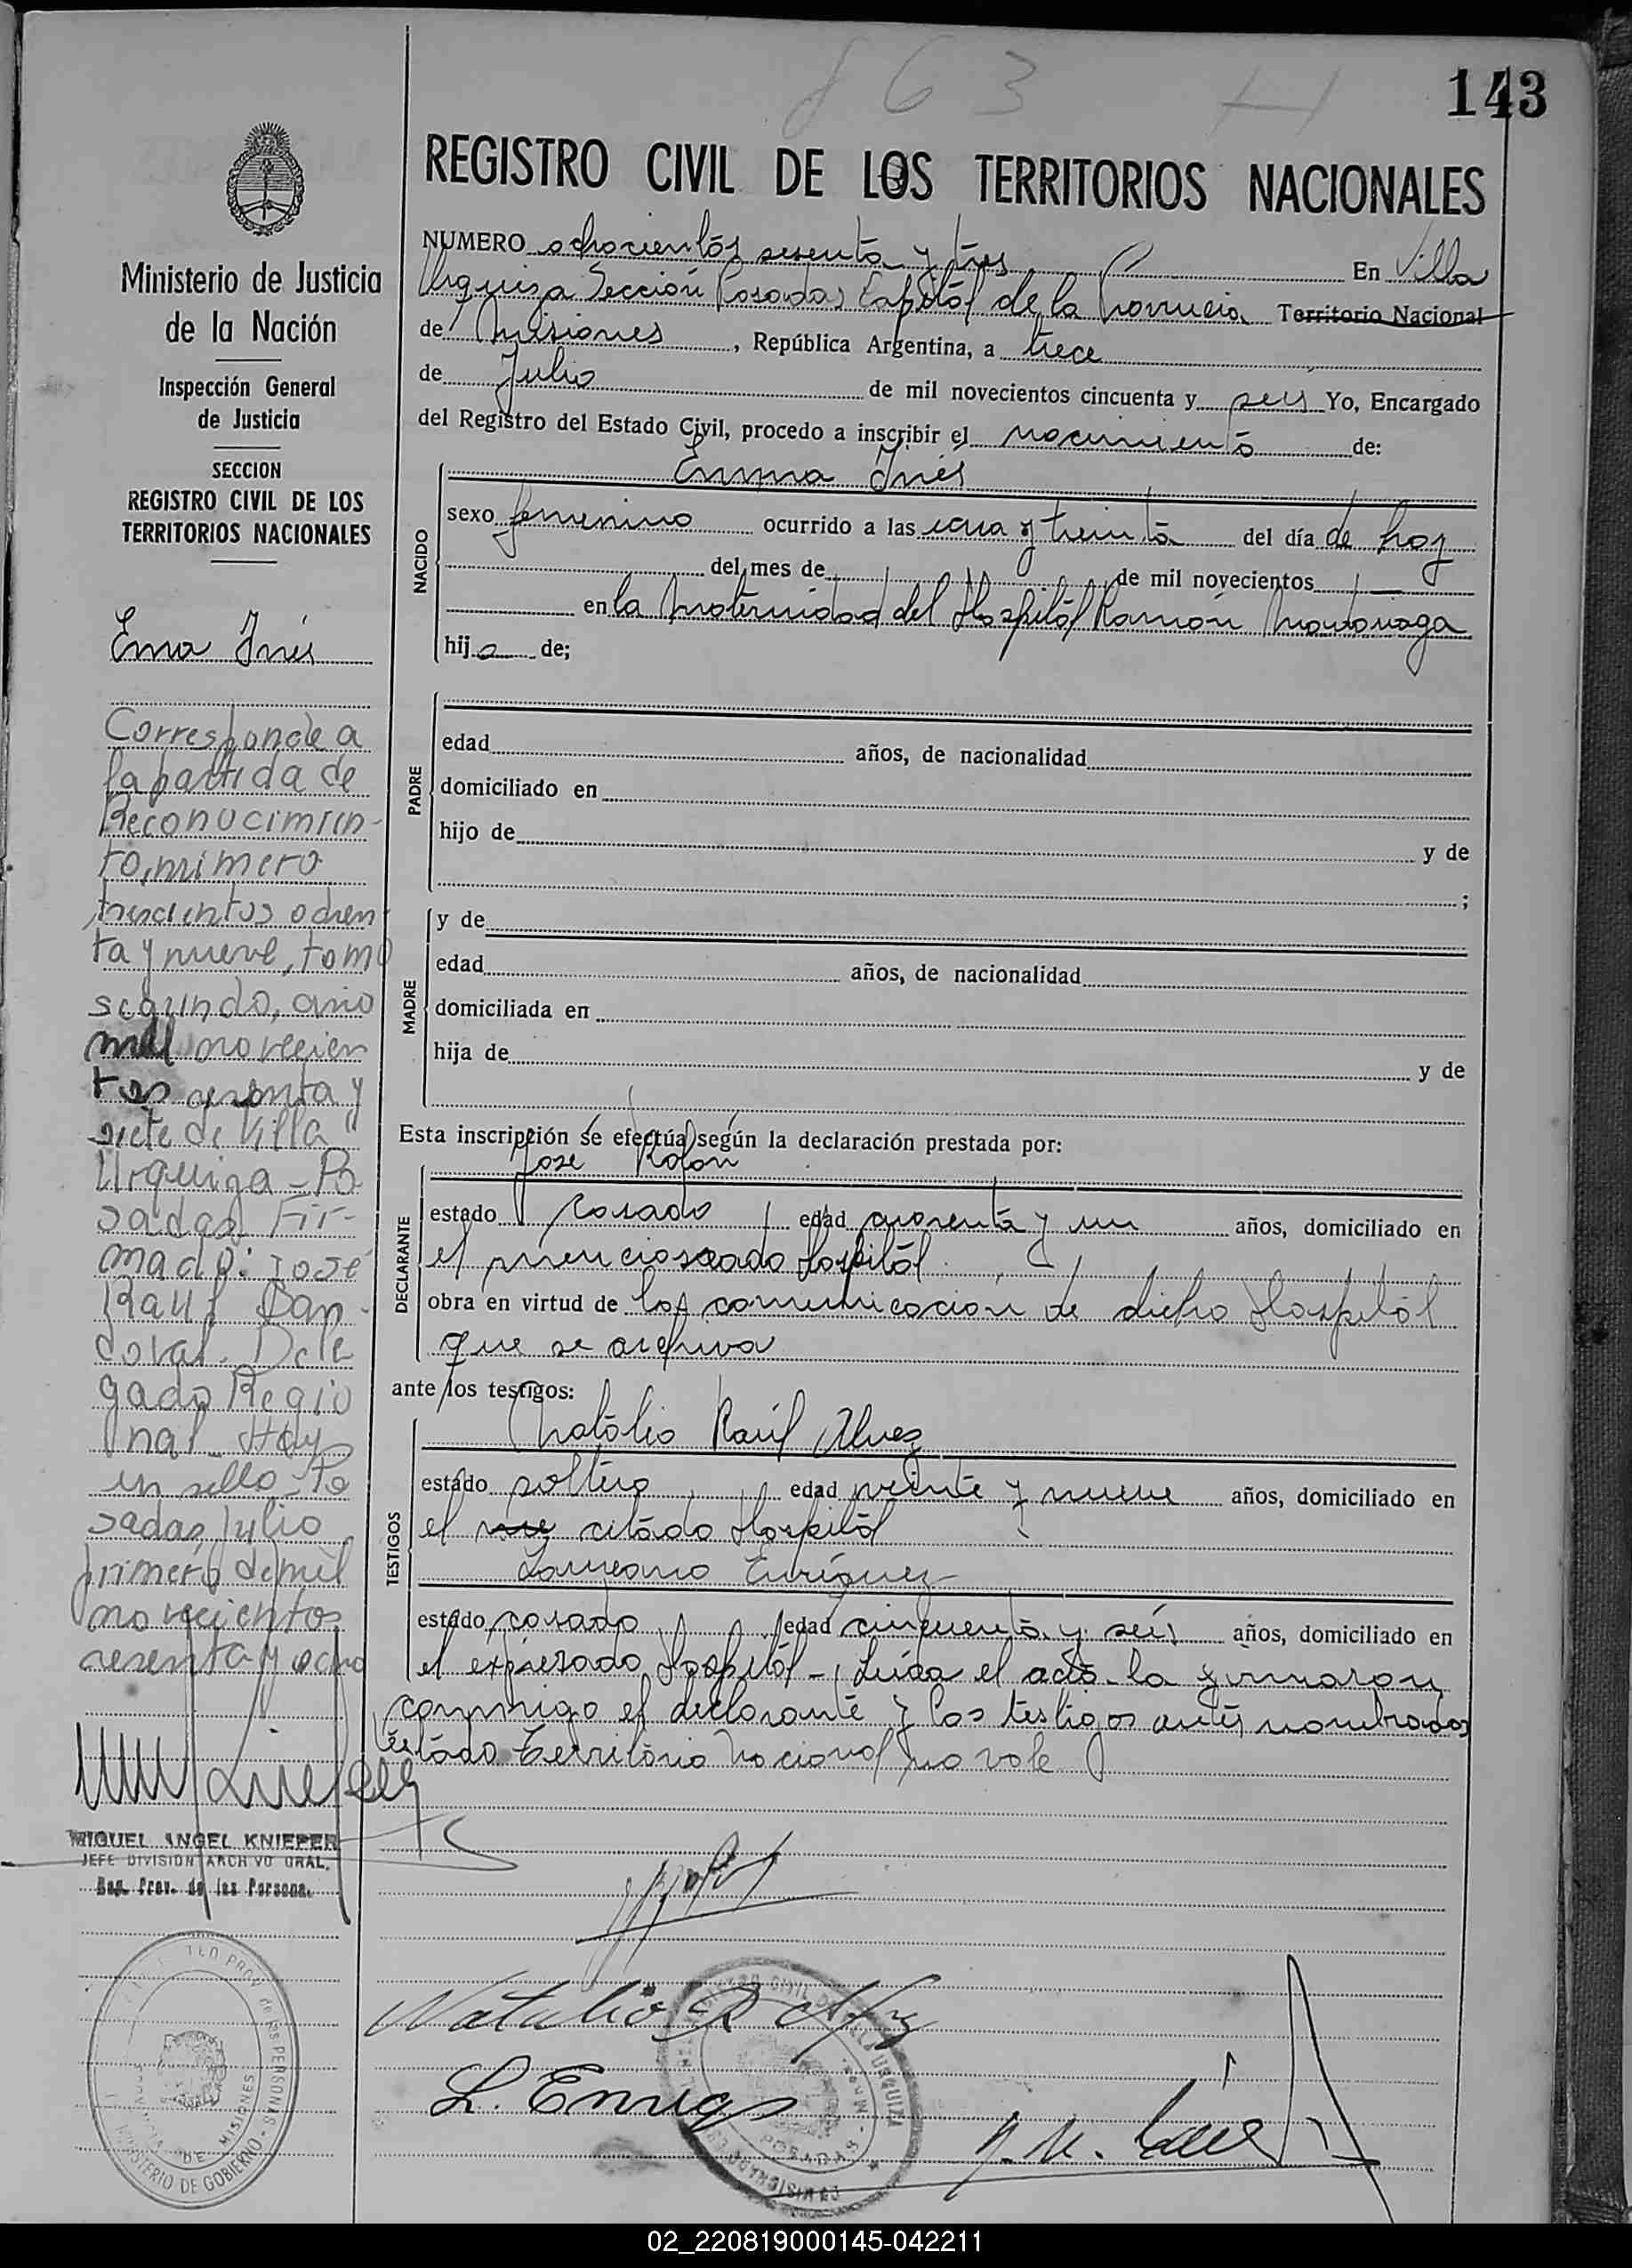 863
143
REGISTRO CIVIL DE LOS TERRITORIOS NACIONALES
NUMERO ochocientos sesenta y tres En Villa
Urquiza Sección Posadas Capital de la Provincia Territorio Nacional
de Misiones, República Argentina, a trece
de Julio de mil novecientos cincuenta y seis Yo, Encargado
del Registro del Estado Civil, procedo a inscribir el nacimiento de:
NACIDO
Emma Inés
sexo femenino ocurrido a las una y treinta del día de hoy
del mes de de mil novecientos
en la Maternidad del Hospital Ramón Madariaga
hija de;
PADRE
edad años, de nacionalidad
domiciliado en
hijo de y de
;
MADRE
y de
edad años, de nacionalidad
domiciliada en
hija de y de
Esta inscripción se efectúa según la declaración prestada por:
DECLARANTE
José Rolon
estado casado edad cuarenta y un años, domiciliado en
el mencionado Hospital
obra en virtud de la comunicación de dicho Hospital
que se archiva
ante los testigos:
TESTIGOS
Natalio Raúl Alvez
estado soltero edad veinte y nueve años, domiciliado en
el citado Hospital
Laureano Enriquez
estado casado edad cincuenta y seis años, domiciliado en
el expresado Hospital - Leída el acta la firmaron
conmigo el declarante y los testigos antes nombrados
Testado Territorio Nacional no vale
Natalio R Alvez
L. Enriqz
REGISTRO CIVIL DE VILLA URQUIZA
POSADAS
MISIONES
Ministerio de Justicia
de la Nación
Inspección General
de Justicia
SECCION
REGISTRO CIVIL DE LOS
TERRITORIOS NACIONALES
Ema Inés
Corresponde a
la partida de
Reconocimien-
to, número
trescientos ochen
ta y nueve, tomo
segundo, año
mil novecien
tos sesenta y
siete de Villa
Urquiza - Po
sadas Fir-
mado: José
Raul San-
doval. Dele
gado Regio
nal. Hay
un sello - Po
sadas, Julio
primero de mil
novecientos
sesenta y ocho
MIGUEL ANGEL KNIEPER
JEFE DIVISION ARCHIVO GRAL.
Reg. Prov. de las Personas
PROV. de las PERSONAS
PROVINCIA DE MISIONES
MINISTERIO DE GOBIERNO
02_220819000145-042211